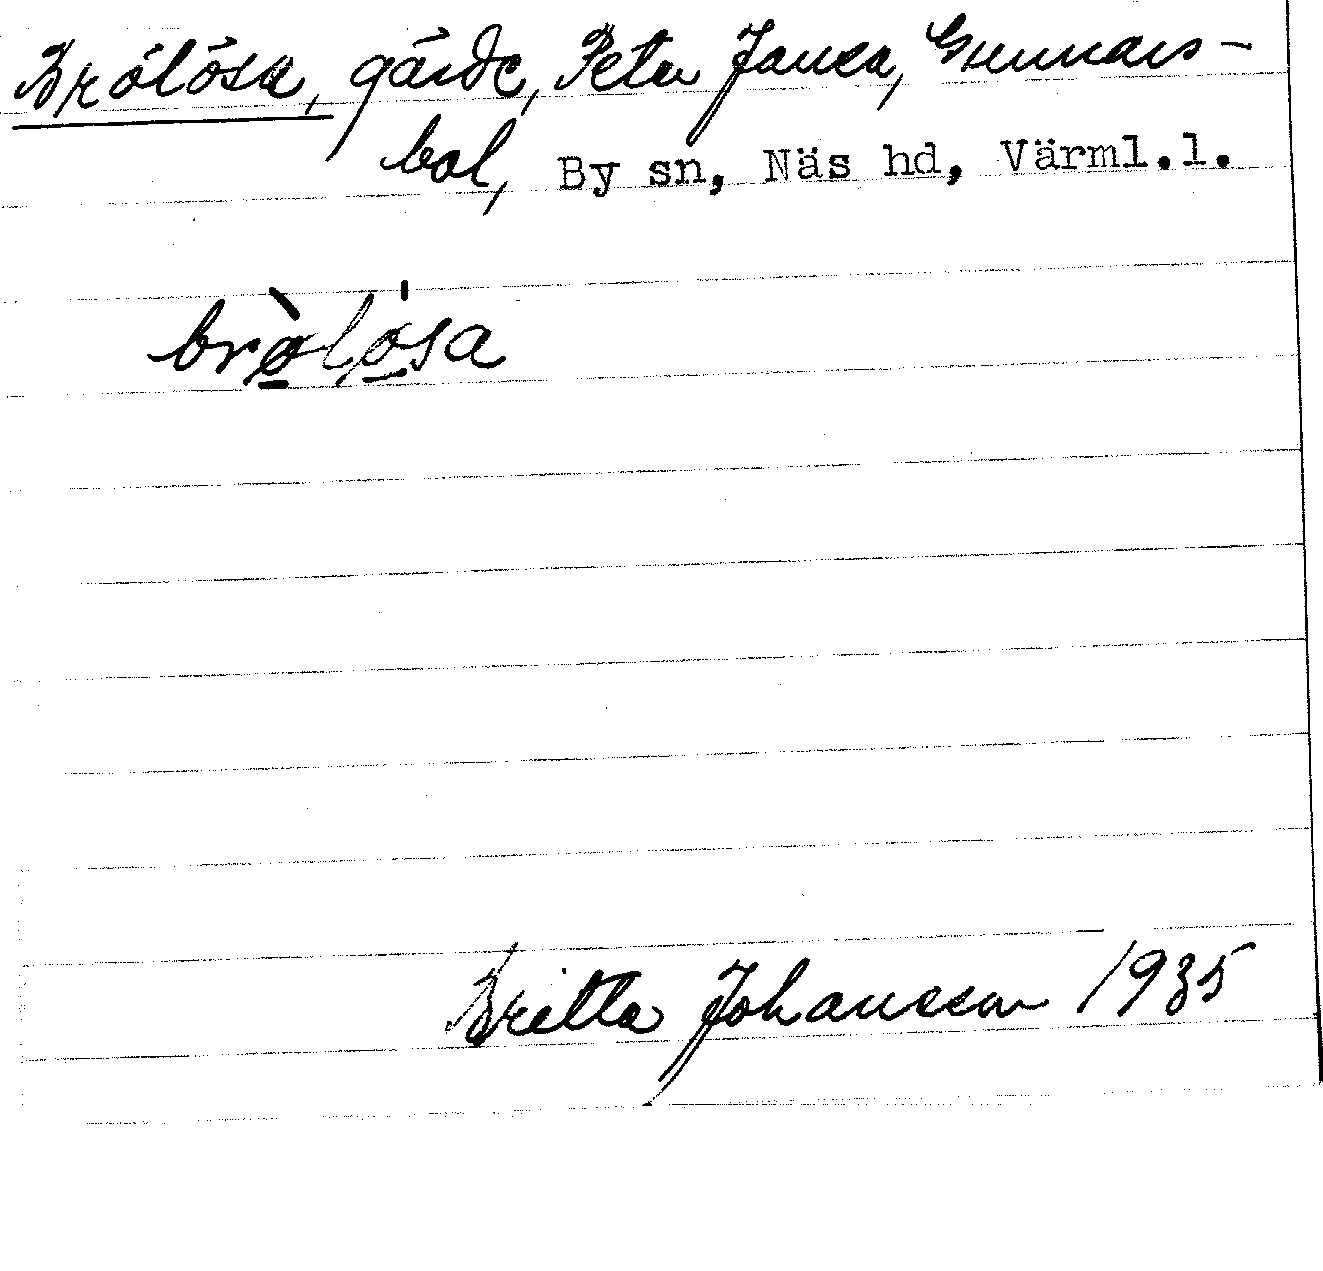 Brölösa, gärde, Peter Jansa, Gunnars-
bol, By sn, Näs hd, Värml.l.
brø̀lø̍sa
Britta Johansson 1935